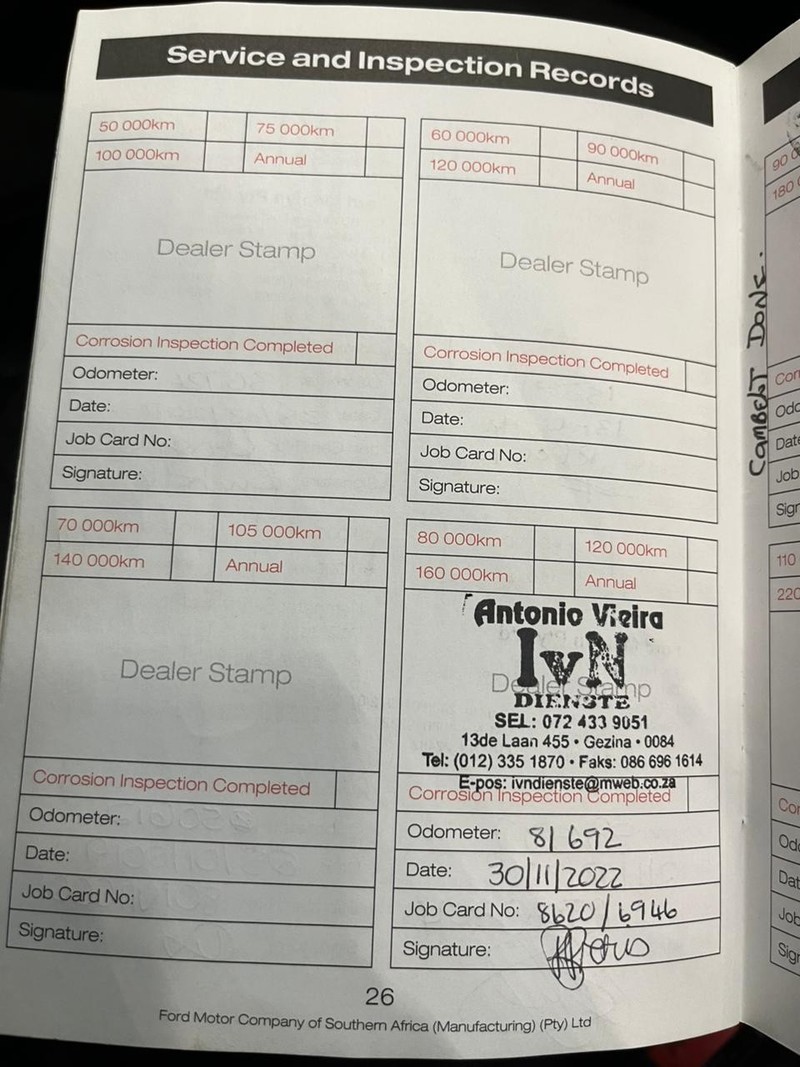 Service and Inspection Records
50 000km 75 000km
100 000km Annual
Dealer Stamp
Corrosion Inspection Completed
Odometer:
Date:
Job Card No:
Signature:
60 000km 90 000km
120 000km Annual
Dealer Stamp
Corrosion Inspection Completed
Odometer:
Date:
Job Card No:
Signature:
70 000km 105 000km
140 000km Annual
Dealer Stamp
Corrosion Inspection Completed
Odometer:
Date:
Job Card No:
Signature:
80 000km 120 000km
160 000km Annual
Antonio Vieira
IvN
Dealer Stamp
DIENSTE
SEL: 072 433 9051
13de Laan 455 • Gezina • 0084
Tel: (012) 335 1870 • Faks: 086 696 1614
E-pos: ivndienste@mweb.co.za
Corrosion Inspection Completed
Odometer: 81 692
Date: 30/11/2022
Job Card No: 8620/6946
Signature:
26
Ford Motor Company of Southern Africa (Manufacturing) (Pty) Ltd
CAMBELT DONE.
180
Cor
Odo
Date
Job
Sign
110
220
Cor
Odo
Dat
Job
Sig